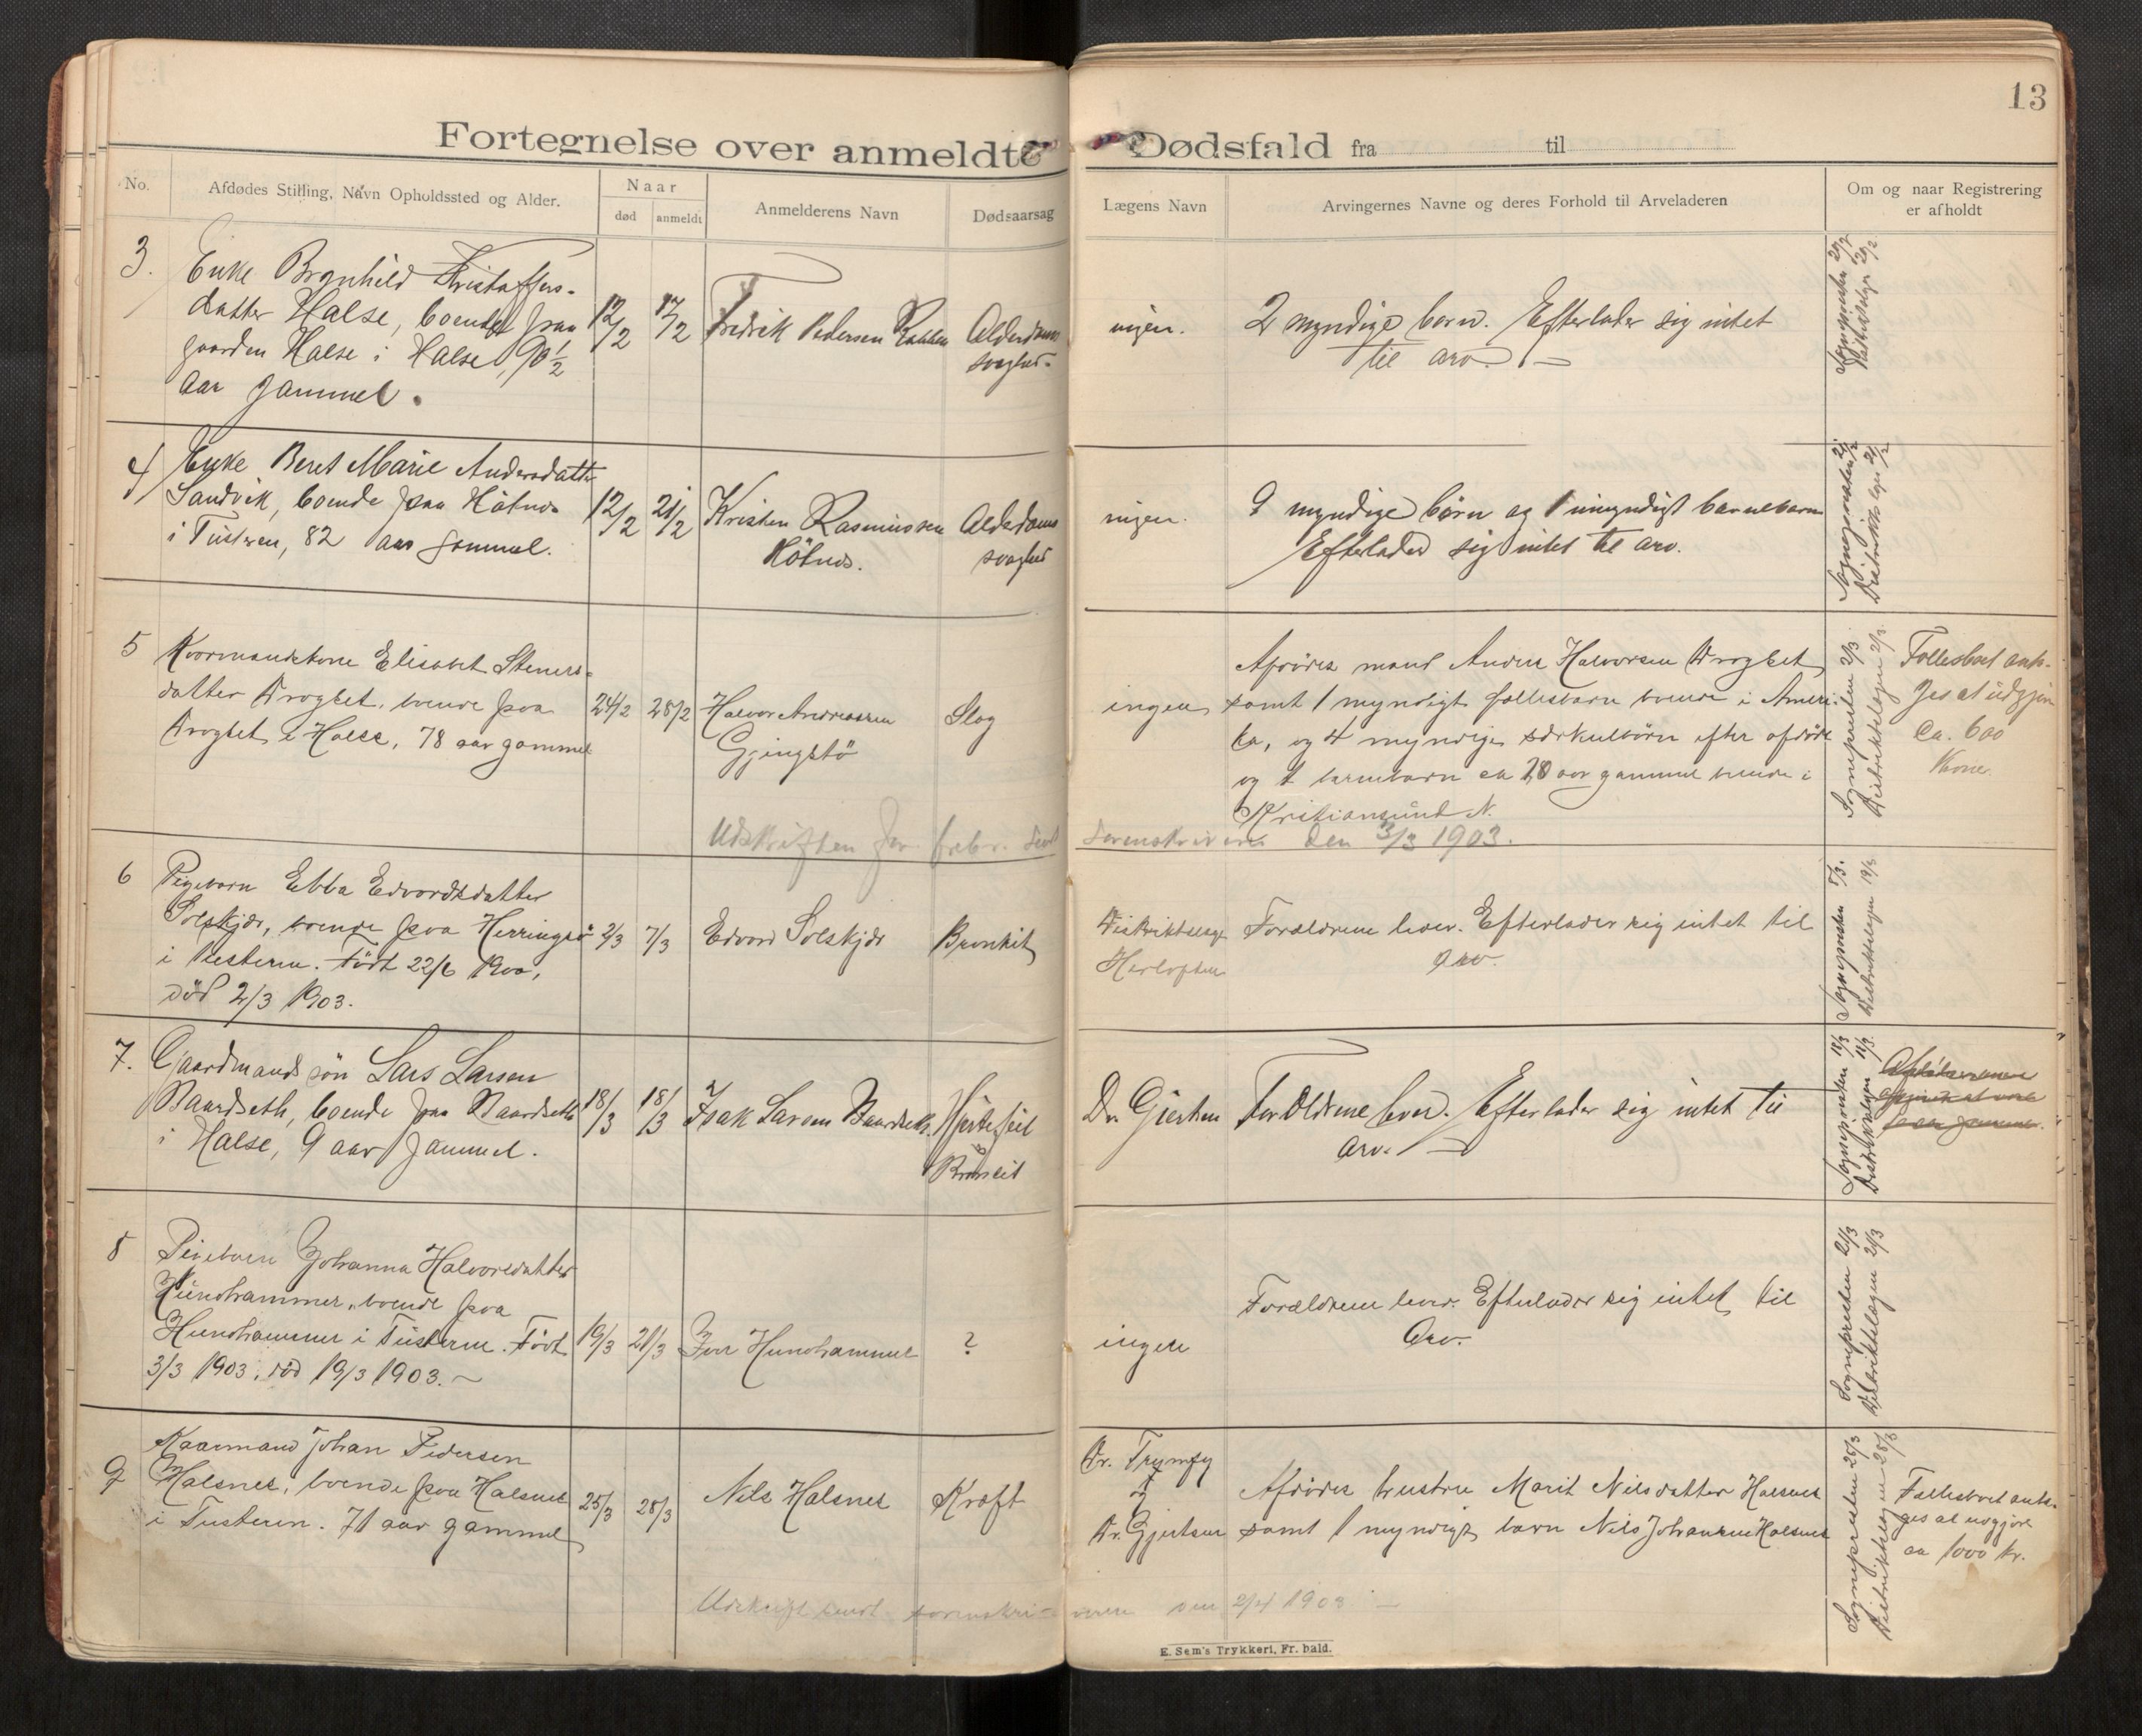 13
Fortegnelse over anmeldte Dødsfald fra til
No.
Afdødes Stilling, Navn Opholdssted og Alder.
Naar
død anmeldt
Anmelderens Navn
Dødsaarsag
Lægens Navn
Arvingernes Navne og deres Forhold til Arveladeren
Om og naar Registrering
er afholdt
3.
Enke Brynhild Kristoffers-
datter Halse, boende paa
gaarden Halse i Halse, 90 1/2
aar gammel.
12/2 17/2
Fredrik Pedersen
Alderdoms
svaghed.
ingen.
2 myndige børn. Efterlader sig intet
til arv. —
Sognepresten 20/2
4
Enke Beret Marie Andersdatter
Sandvik, boende paa
i Tusteren, 82 aar gammel.
12/2 21/2
Kristen Rasmussen
Alderdoms
svaghed
ingen.
9 myndige børn og 1 umyndigt barnebarn
Efterlader sig intet til arv.
Sognepresten 21/2
Distriktslægen 21/2
5
Kaarmandskone Elisabet Steners-
datter Drogset, boende paa
Drogset i Halse, 78 aar gammel
24/2 28/2
Halvor Andreassen
Gjengstö
Slag
ingen
Afdødes mand Anders Halvorsen Drogset
samt 1 myndigt fællesbarn boende i Ameri-
ka, og 4 myndige særkulbörn efter afdöde
og 1 barnebarn ca 20 aar gammel boende i
Kristiansund N.
Sognepresten 2/3
Distriktslægen 2/3
Fællesboet anta-
ges at udgjøre
Ca. 600
Krone
Udskriften for febr. sendt sorenskriveren den 3/3 1903.
6
Pigebarn Ebba Edvardsdatter
Solskjær, boende paa
i Tusteren. Födt 22/6 1900,
död 2/3 1903.
2/3 7/3
Edvard Solskjær
Bronkit
Distriktslæge
Herlofsen
Forældrene lever. Efterlader sig intet til
Arv.
Sognepresten
Distriktslægen
7.
Gaardmands sön Lars Larsen
Baardseth, boende paa Baardseth
i Halse, 9 aar gammel.
18/3 18/3
Isak Larsen Baardseth
Hjertefeil
&
Bronkit
Dr. Gjertsen
Forældrene lever. Efterlader sig intet til
arv. —
Sognepresten 18/3
Distriktslægen 18/3
8
Pigebarn Johanna Halvorsdatter
Hundhammer, boende paa
Hundhammer i Tusteren. Födt
3/3 1903, död 19/3 1903. —
19/3 21/3
Iver Hundhammer
?
ingen
Forældrene lever. Efterlader sig intet til
Arv.
Sognepresten 21/3
Distriktslægen 21/3
9
Kaarmand Johan Pedersen
Halsnes, boende paa Halsnes
i Tusteren. 71 aar gammel
25/3 28/3
Nils Halsnes
Kræft
Dr. Trumpy
og
Dr. Gjertsen
Afdødes hustru Marit Nilsdatter Halsnes
samt 1 myndigt barn Nils Johansen Halsnes
Sognepresten 28/3
Distriktslægen 28/3
Fællesboet anta-
ges at udgjøre
ca 1000 kr.
Udskrift sendt sorenskri-veren den 2/4 1903 —
E. Sem's Trykkeri, Fr. hald.